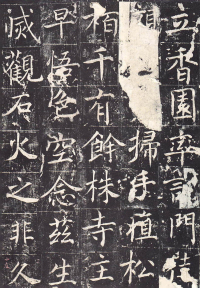 立香園率言門徒
掃手植松
栢千有餘株寺主
早悟色空念茲生
滅觀石火之非久